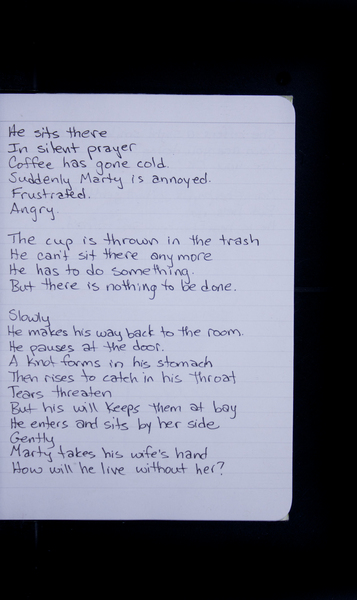 He sits there
In silent prayer
Coffee has gone cold.
Suddenly Marty is annoyed.
Frustrated.
Angry.
The cup is thrown in the trash
He can't sit there anymore
He has to do something.
But there is nothing to be done.
Slowly
He makes his way back to the room.
He pauses at the door.
A knot forms in his stomach
Then rises to catch in his throat
Tears threaten
But his will keeps them at bay
He enters and sits by her side
Gently
Marty takes his wife's hand
How will he live without her?